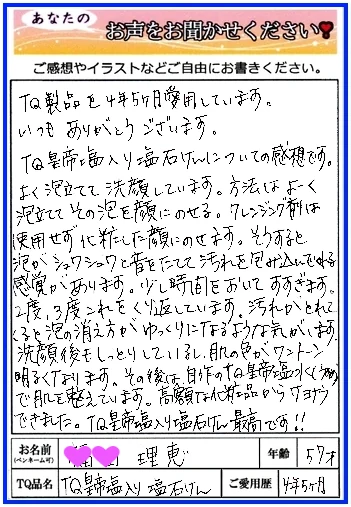 あなたの
お声をお聞かせください
ご感想やイラストなどご自由にお書きください。
TQ製品を4年5ヶ月愛用しています。
いつも ありがとうございます。
TQ皇帝塩入り塩石けんについての感想です。
よく泡立てて洗顔しています。方法はよーく
泡立てその泡を顔にのせる。クレンジング剤は
使用せず化粧した顔にのせます。そうすると
泡がシュワシュワと音をたてて汚れを包み込んでゆる
感覚があります。少し時間をおいてすすぎます。
2度、3度これをくり返しています。汚れがとれて
くると泡の消え方がゆっくりになるような気がします。
洗顔後もしっとりしているし、肌の色がワントーン
明るくなります。その後は、自作のTQ皇帝塩水
で肌を整えています。高額な化粧品からサヨナラ
できました。TQ皇帝塩入り塩石けん最高です!!
お名前
(ペンネーム可)
理恵
年齢
57才
TQ品名
TQ皇帝塩入り塩石けん
ご愛用歴
4年5ヶ月